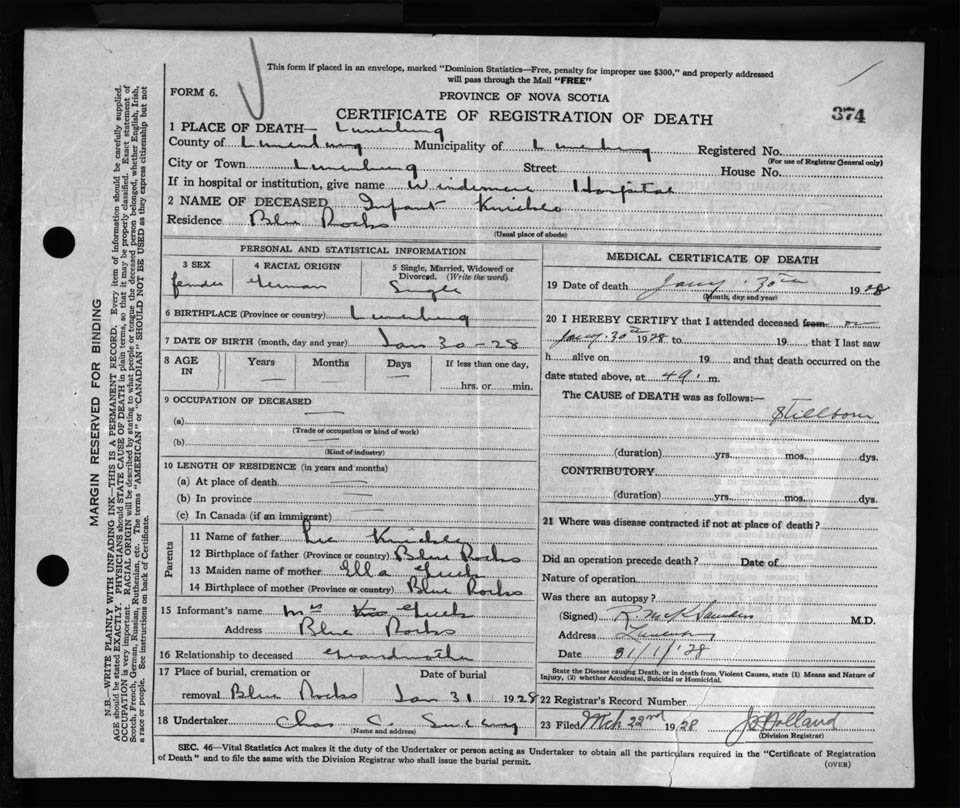 This form if placed in an envelope, marked "Dominion Statistics—Free, penalty for improper use $300," and properly addressed
will pass through the Mail "FREE"
FORM 6.
PROVINCE OF NOVA SCOTIA
CERTIFICATE OF REGISTRATION OF DEATH
374
1 PLACE OF DEATH— Lunenburg
County of Lunenburg Municipality of Lunenburg Registered No.
(For use of Registrar General only)
City or Town Lunenburg Street House No.
If in hospital or institution, give name Hospital
2 NAME OF DECEASED Infant Knickle
Residence Blue Rocks
(Usual place of abode)
PERSONAL AND STATISTICAL INFORMATION
3 SEX
4 RACIAL ORIGIN
5 Single, Married, Widowed or
Divorced. (Write the word)
German
Single
6 BIRTHPLACE (Province or country) Lunenburg
7 DATE OF BIRTH (month, day and year) Jan 30-28
8 AGE
IN
Years Months Days If less than one day,
hrs. or min.
9 OCCUPATION OF DECEASED
(a)
(Trade or occupation or kind of work)
(b)
(Kind of industry)
10 LENGTH OF RESIDENCE (in years and months)
(a) At place of death
(b) In province
(c) In Canada (if an immigrant)
Parents
11 Name of father Knickle
12 Birthplace of father (Province or country) Blue Rocks
13 Maiden name of mother Ella
14 Birthplace of mother (Province or country) Blue Rocks
15 Informant's name Mrs
Address Blue Rocks
16 Relationship to deceased Grandmother
17 Place of burial, cremation or Date of burial
removal Blue Rocks Jan 31 1928
18 Undertaker Chas C.
(Name and address)
MEDICAL CERTIFICATE OF DEATH
19 Date of death Jany. 30th 1928
(Month, day and year)
20 I HEREBY CERTIFY that I attended deceased from on
Jany. 30th 1928 to 19 that I last saw
h alive on 19 and that death occurred on the
date stated above, at m.
The CAUSE of DEATH was as follows:—
Stillborn
(duration) yrs. mos. dys.
CONTRIBUTORY
(duration) yrs. mos. dys.
21 Where was disease contracted if not at place of death?
Did an operation precede death? Date of
Nature of operation
Was there an autopsy?
(Signed) Saunders M.D.
Address Lunenburg
Date 31/1/'28
State the Disease causing Death, or in death from Violent Causes, state (1) Means and Nature of
Injury, (2) whether Accidental, Suicidal or Homicidal.
22 Registrar's Record Number
23 Filed Mch 22nd 1928 Holland
(Division Registrar)
SEC. 46—Vital Statistics Act makes it the duty of the Undertaker or person acting as Undertaker to obtain all the particulars required in the "Certificate of Registration
of Death" and to file the same with the Division Registrar who shall issue the burial permit.
(OVER)
MARGIN RESERVED FOR BINDING
N.B.—WRITE PLAINLY WITH UNFADING INK—THIS IS A PERMANENT RECORD. Every item of information should be carefully supplied.
AGE should be stated EXACTLY. PHYSICIANS should STATE CAUSE OF DEATH in plain terms, so that it may be properly classified. Exact statement of
OCCUPATION is very important. RACIAL ORIGIN will be described by stating to what people or tongue the deceased person belonged, whether English, Irish,
Scotch, French, German, Russian, Ruthenian, etc. The terms "AMERICAN" or "CANADIAN" SHOULD NOT BE USED as they express citizenship but not
a race or people. See instructions on back of Certificate.